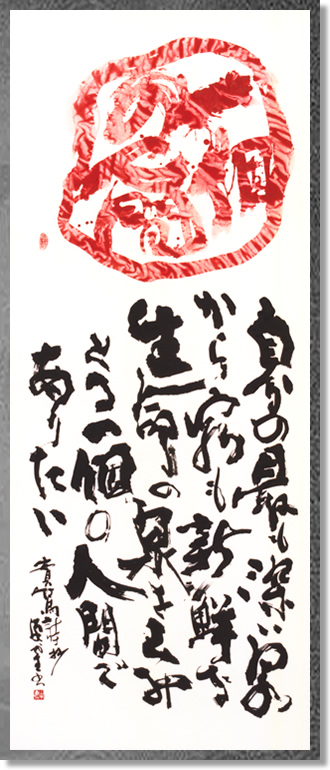 自分の最も深い
から最も新鮮な
生命の泉をくみ
とる一個の人間で
ありたい